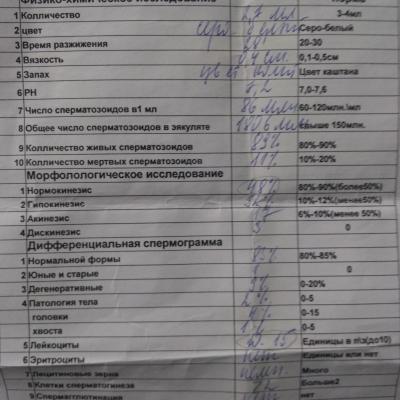 Физико-химическое исследование
1 Колличество мл 3-4мл
2 цвет серо-белый Серо-белый
3 Время разжижения 20-30
4 Вязкость см. 0,1-0,5см
5 Запах Цвет каштана
6 PH 7,0-7,6
7 Число сперматозоидов в1 мл 86 млн 60-120млн.\мл
8 Общее число сперматозоидов в эякуляте свыше 150млн.
9 Колличество живых сперматозоидов 89% 80%-90%
10 Колличество мертвых сперматозоидов 11% 10%-20%
Морфолологическое исследование
1 Нормокинезис 48% 80%-90%(более50%)
2 Гипокинезис 10%-12%(менее50%)
3 Акинезис 6%-10%(менее 50%)
4 Дискинезис 0
Дифференциальная спермограмма
1 Нормальной формы 83% 80%-85%
2 Юные и старые 0
3 Дегенеративные 0-20%
4 Патология тела 2% 0-5
головки 0-15
хвоста 0-5
5 Лейкоциты Единицы в п\з(до10)
6 Эритроциты нет Единицы или нет
7 Лецитиновые зерна Много
8 Клетки сперматогинеза Больше2
9 Спермаглютинация нет нет